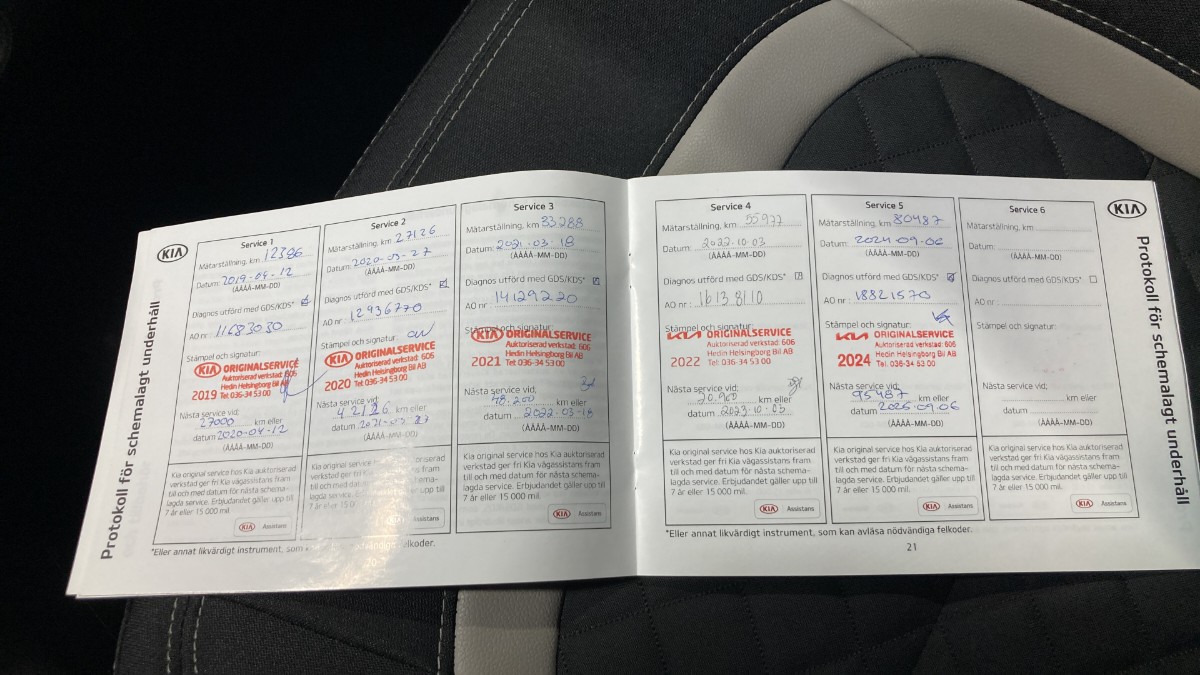 Protokoll för schemalagt underhåll
KIA
Service 1
Mätarställning, km 12386
Datum: 2019-04-12
(ÅÅÅÅ-MM-DD)
Diagnos utförd med GDS/KDS*
AO nr: 11683030
Stämpel och signatur:
KIA ORIGINALSERVICE
Auktoriserad verkstad: 606
Hedin Helsingborg Bil AB
2019 Tel: 036-34 53 00
Nästa service vid:
27000 km eller
datum 2020-04-12
(ÅÅÅÅ-MM-DD)
Kia original service hos Kia auktoriserad
verkstad ger fri Kia vägassistans fram
till och med datum för nästa schema-
lagda service. Erbjudandet gäller upp till
7 år eller 15 000 mil.
KIA Assistans
Service 2
Mätarställning, km 27126
Datum: 2020-03-27
(ÅÅÅÅ-MM-DD)
Diagnos utförd med GDS/KDS*
AO nr: 12936770
Stämpel och signatur:
KIA ORIGINALSERVICE
Auktoriserad verkstad: 606
Hedin Helsingborg Bil AB
2020 Tel: 036-34 53 00
Nästa service vid:
42126 km eller
datum 2021-03-27
(ÅÅÅÅ-MM-DD)
KIA Assistans
Service 3
Mätarställning, km 33288
Datum: 2021-03-18
(ÅÅÅÅ-MM-DD)
Diagnos utförd med GDS/KDS*
AO nr: 14129220
Stämpel och signatur:
KIA ORIGINALSERVICE
Auktoriserad verkstad: 606
Hedin Helsingborg Bil AB
2021 Tel: 036-34 53 00
Nästa service vid:
48.200 km eller
datum 2022-03-18
(ÅÅÅÅ-MM-DD)
Kia original service hos Kia auktoriserad
verkstad ger fri Kia vägassistans fram
till och med datum för nästa schema-
lagda service. Erbjudandet gäller upp till
7 år eller 15 000 mil.
KIA Assistans
*Eller annat likvärdigt instrument, som felkoder.
Service 4
Mätarställning, km 55977
Datum: 2022-10-03
(ÅÅÅÅ-MM-DD)
Diagnos utförd med GDS/KDS*
AO nr: 16138110
Stämpel och signatur:
KIA ORIGINALSERVICE
Auktoriserad verkstad: 606
Hedin Helsingborg Bil AB
2022 Tel: 036-34 53 00
Nästa service vid:
km eller
datum 2023-10-03
(ÅÅÅÅ-MM-DD)
Kia original service hos Kia auktoriserad
verkstad ger fri Kia vägassistans fram
till och med datum för nästa schema-
lagda service. Erbjudandet gäller upp till
7 år eller 15 000 mil.
KIA Assistans
Service 5
Mätarställning, km 80487
Datum: 2024-09-06
(ÅÅÅÅ-MM-DD)
Diagnos utförd med GDS/KDS*
AO nr: 18821570
Stämpel och signatur:
KIA ORIGINALSERVICE
Auktoriserad verkstad: 606
Hedin Helsingborg Bil AB
2024 Tel: 036-34 53 00
Nästa service vid:
95487 km eller
datum 2025-09-06
(ÅÅÅÅ-MM-DD)
Kia original service hos Kia auktoriserad
verkstad ger fri Kia vägassistans fram
till och med datum för nästa schema-
lagda service. Erbjudandet gäller upp till
7 år eller 15 000 mil.
KIA Assistans
Service 6
Mätarställning, km
Datum:
(ÅÅÅÅ-MM-DD)
Diagnos utförd med GDS/KDS*
AO nr:
Stämpel och signatur:
Nästa service vid:
km eller
datum
(ÅÅÅÅ-MM-DD)
Kia original service hos Kia auktoriserad
verkstad ger fri Kia vägassistans fram
till och med datum för nästa schema-
lagda service. Erbjudandet gäller upp till
7 år eller 15 000 mil.
KIA Assistans
*Eller annat likvärdigt instrument, som kan avläsa nödvändiga felkoder.
21
KIA
Protokoll för schemalagt underhåll